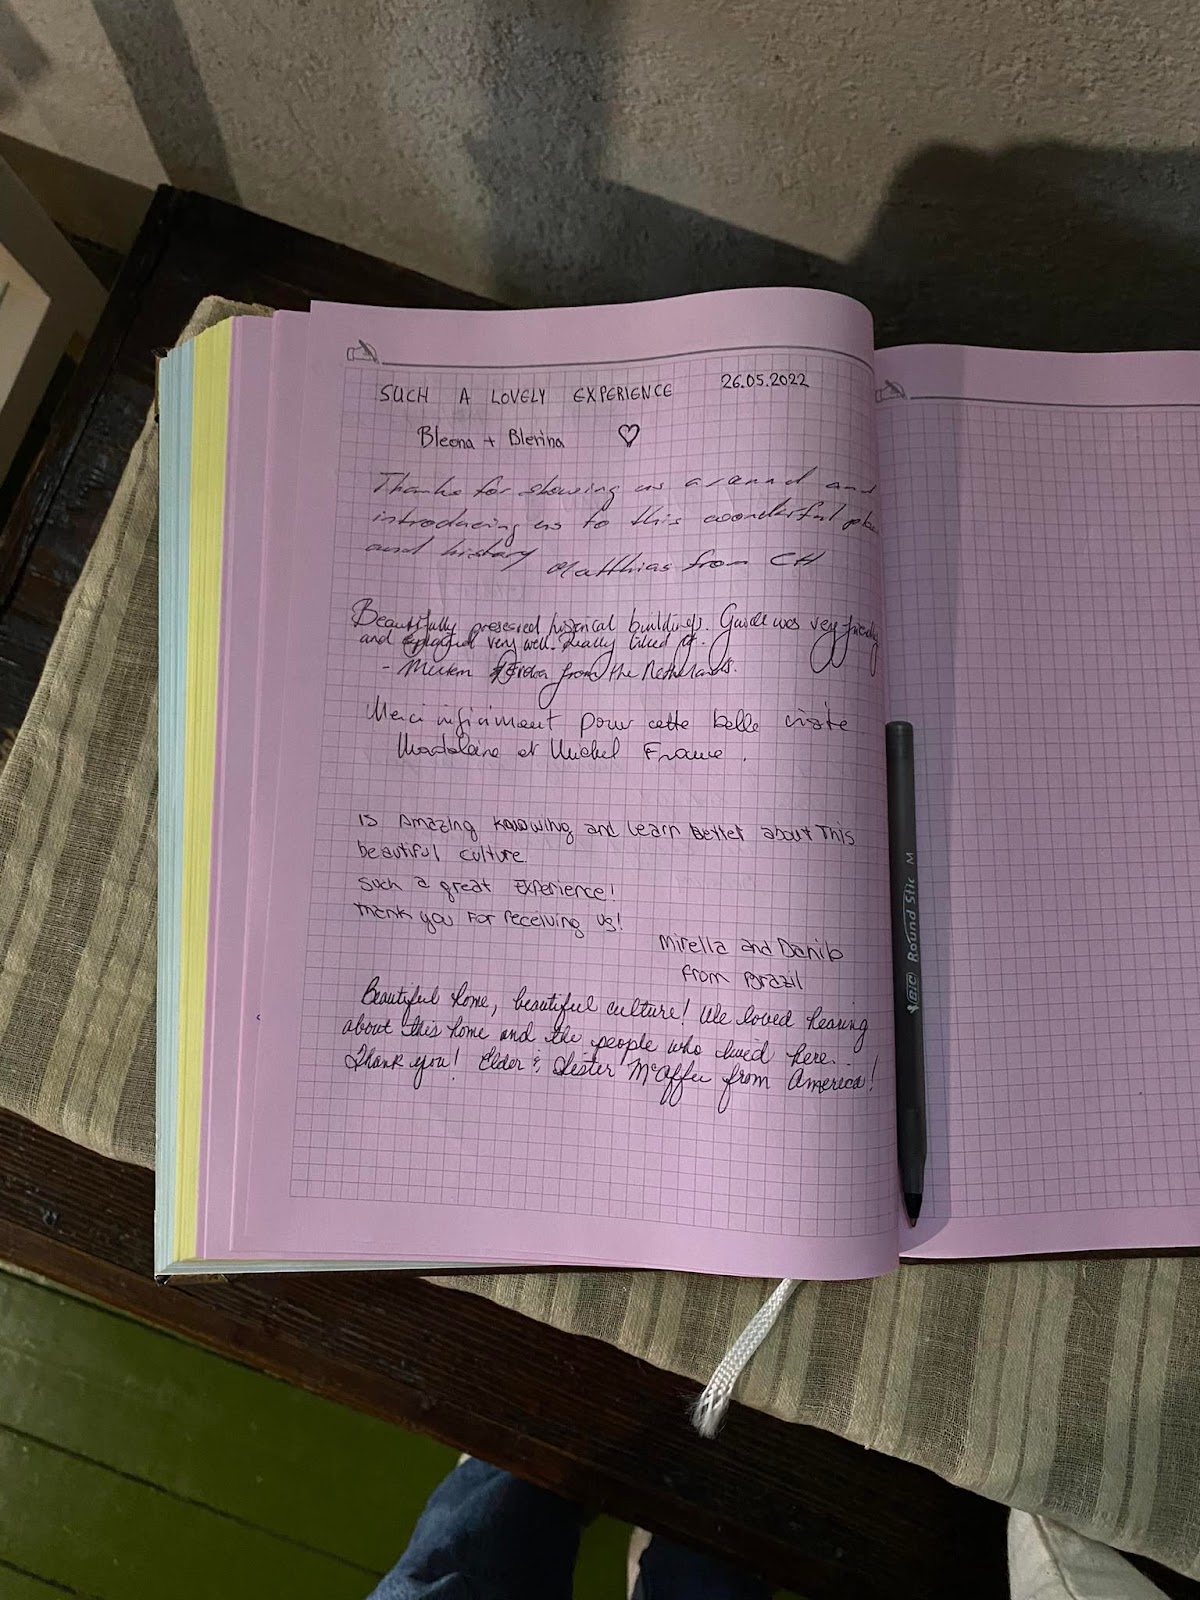 SUCH A LOVELY EXPERIENCE 26.05.2022
Bleona + Blerina ♡
Thanks for showing us around and
introducing us to this wonderful
and history Matthias from CH
Beautifully preserved historical buildings. Guide was very friendly
and very well. Really liked it.
- from the Netherlands.
Merci infiniment pour cette belle visite
Madeleine et Michel France.
Is Amazing knowing and learn better about This
beautiful culture
such a great Experience!
thank you for receiving us!
Mirella and Danilo
from Brazil
Beautiful home, beautiful culture! We loved hearing
about this home and the people who lived here.
Thank you! Elder & Sister McAffee from America!
BIC Round Stic M